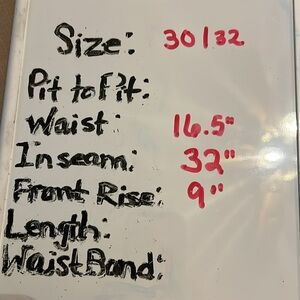 Size: 30/32
Pit to Pit:
Waist: 16.5"
Inseam: 32"
Front Rise: 9"
Length:
Waist Band: